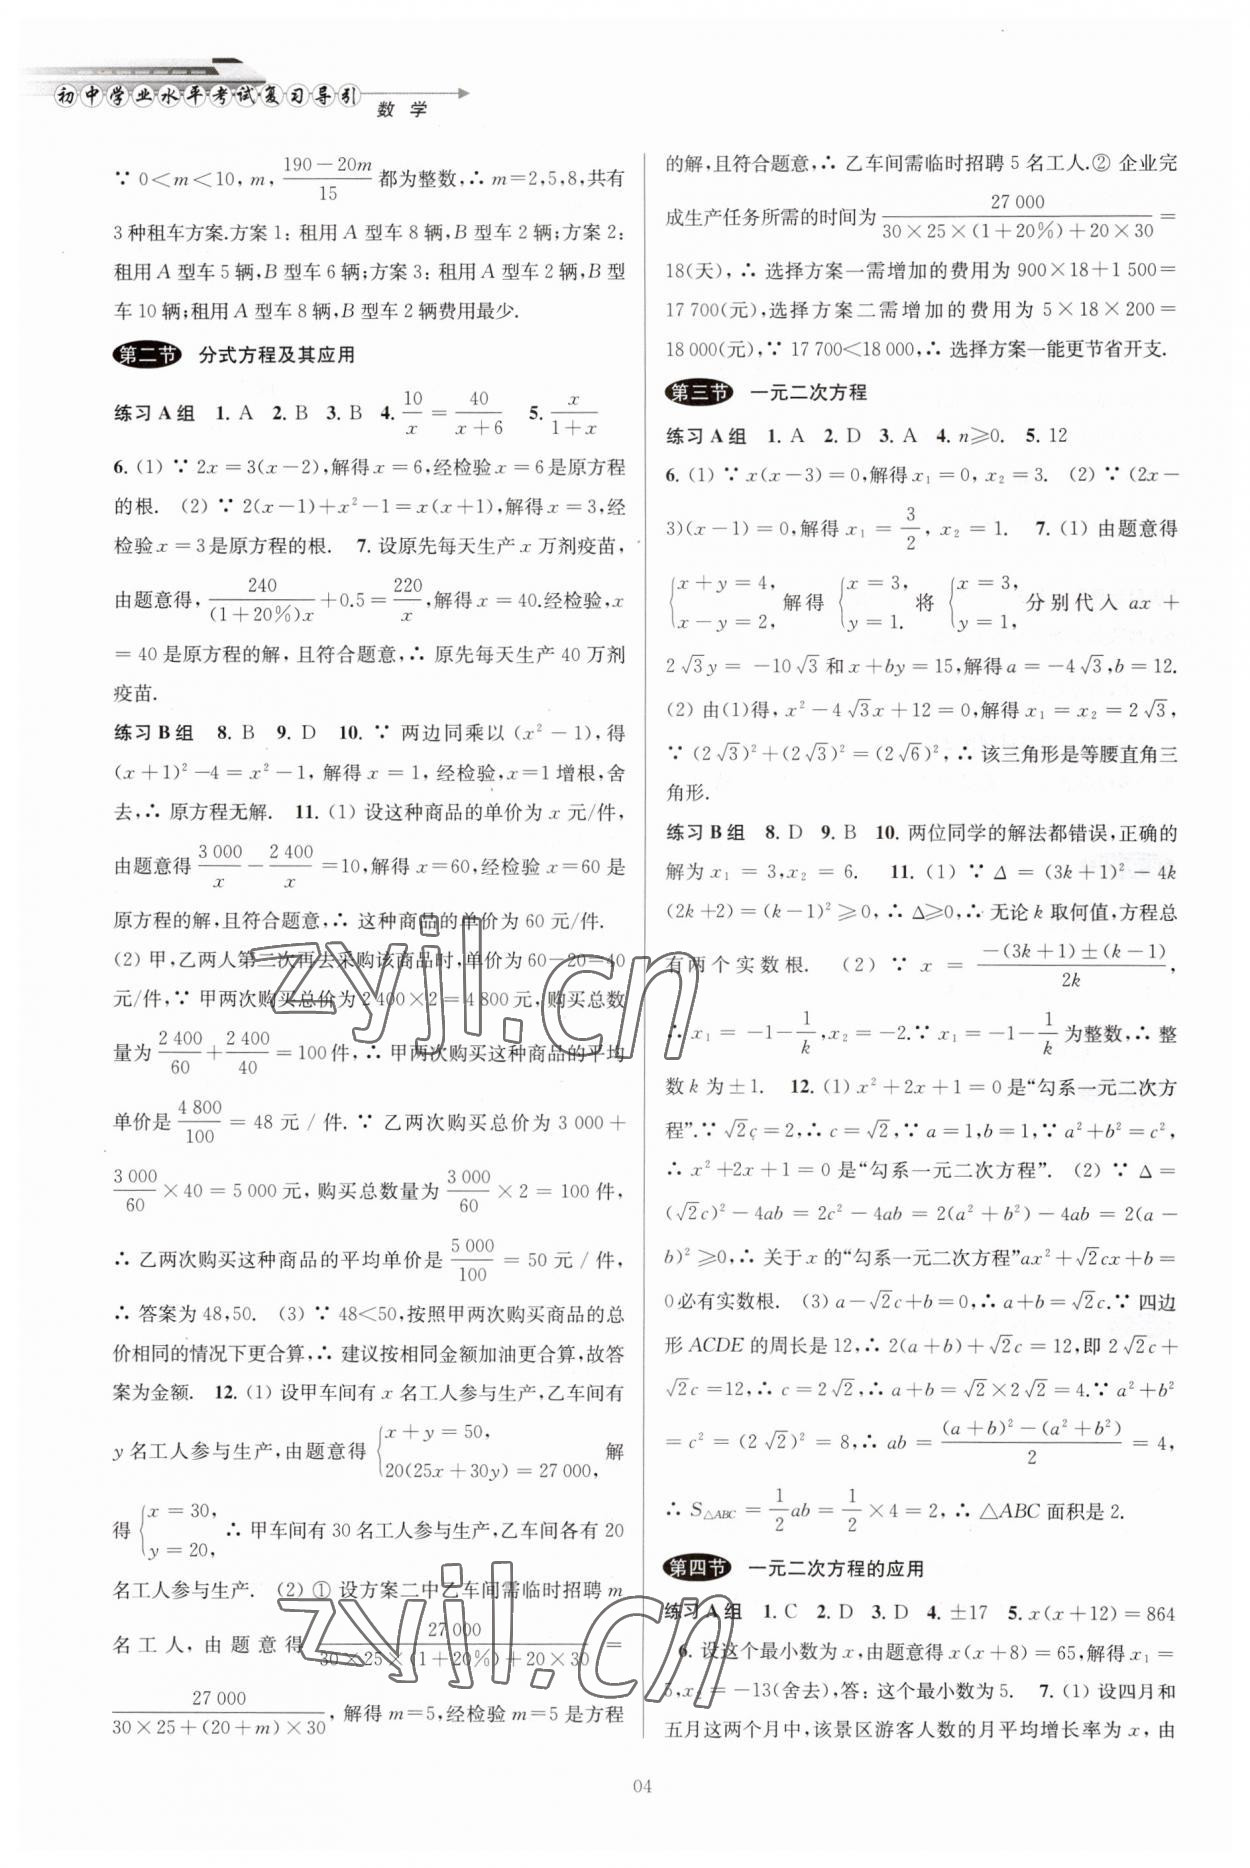 初中学业水平考试复习导引
数 学
∵ 0<m<10, m, \frac{190-20m}{15} 都为整数,∴ m=2,5,8,共有
3种租车方案.方案1:租用A型车8辆,B型车2辆;方案2:
租用A型车5辆,B型车6辆;方案3:租用A型车2辆,B型
车10辆;租用A型车8辆,B型车2辆费用最少.
第二节 分式方程及其应用
练习A组 1. A 2. B 3. B 4. \frac{10}{x}=\frac{40}{x+6} 5. \frac{x}{1+x}
6. (1) ∵ 2x=3(x-2),解得x=6,经检验x=6是原方程
的根. (2) ∵ 2(x-1)+x²-1=x(x+1),解得x=3,经
检验x=3是原方程的根. 7. 设原先每天生产x万剂疫苗,
由题意得,\frac{240}{(1+20%)x}+0.5=\frac{220}{x},解得x=40.经检验,x
=40是原方程的解,且符合题意,∴ 原先每天生产40万剂
疫苗.
练习B组 8. B 9. D 10. ∵ 两边同乘以(x²-1),得
(x+1)²-4=x²-1,解得x=1,经检验,x=1增根,舍
去,∴ 原方程无解. 11. (1) 设这种商品的单价为x元/件,
由题意得\frac{3 000}{x}-\frac{2 400}{x}=10,解得x=60,经检验x=60是
原方程的解,且符合题意,∴ 这种商品的单价为60元/件.
(2) 甲,乙两人第二次再去采购该商品时,单价为60-20=40
元/件,∵ 甲两次购买总价为2 400×2=4 800元,购买总数
量为\frac{2 400}{60}+\frac{2 400}{40}=100件,∴ 甲两次购买这种商品的平均
单价是\frac{4 800}{100}=48元/件. ∵ 乙两次购买总价为3 000+
\frac{3 000}{60}×40=5 000元,购买总数量为\frac{3 000}{60}×2=100件,
∴ 乙两次购买这种商品的平均单价是\frac{5 000}{100}=50元/件,
∴ 答案为48,50. (3) ∵ 48<50,按照甲两次购买商品的总
价相同的情况下更合算,∴ 建议按相同金额加油更合算,故答
案为金额. 12. (1) 设甲车间有x名工人参与生产,乙车间有
y名工人参与生产,由题意得{x+y=50, 20(25x+30y)=27 000, 解
得{x=30, y=20, ∴ 甲车间有30名工人参与生产,乙车间各有20
名工人参与生产. (2) ① 设方案二中乙车间需临时招聘m
名工人,由题意得\frac{27 000}{30×25×(1+20%)+20×30}=
\frac{27 000}{30×25+(20+m)×30},解得m=5,经检验m=5是方程
的解,且符合题意,∴ 乙车间需临时招聘5名工人.② 企业完
成生产任务所需的时间为\frac{27 000}{30×25×(1+20%)+20×30}=
18(天),∴ 选择方案一需增加的费用为900×18+1 500=
17 700(元),选择方案二需增加的费用为5×18×200=
18 000(元),∵ 17 700<18 000,∴ 选择方案一能更节省开支.
第三节 一元二次方程
练习A组 1. A 2. D 3. A 4. n≥0. 5. 12
6. (1) ∵ x(x-3)=0,解得x₁=0, x₂=3. (2) ∵ (2x-
3)(x-1)=0,解得x₁=\frac{3}{2}, x₂=1. 7. (1) 由题意得
{x+y=4, x-y=2, 解得{x=3, y=1. 将{x=3, y=1, 分别代入ax+
2√3y=-10√3和x+by=15,解得a=-4√3,b=12.
(2) 由(1)得,x²-4√3x+12=0,解得x₁=x₂=2√3,
∵ (2√3)²+(2√3)²=(2√6)²,∴ 该三角形是等腰直角三
角形.
练习B组 8. D 9. B 10. 两位同学的解法都错误,正确的
解为x₁=3,x₂=6. 11. (1) ∵ Δ=(3k+1)²-4k
(2k+2)=(k-1)²≥0,∴ Δ≥0,∴ 无论k取何值,方程总
有两个实数根. (2) ∵ x=\frac{-(3k+1)±(k-1)}{2k},
∴ x₁=-1-\frac{1}{k},x₂=-2.∵ x₁=-1-\frac{1}{k}为整数,∴ 整
数k为±1. 12. (1) x²+2x+1=0是“勾系一元二次方
程”.∵ √2c=2,∴ c=√2,∵ a=1,b=1,∵ a²+b²=c²,
∴ x²+2x+1=0是“勾系一元二次方程”. (2) ∵ Δ=
(√2c)²-4ab=2c²-4ab=2(a²+b²)-4ab=2(a-
b)²≥0,∴ 关于x的“勾系一元二次方程”ax²+√2cx+b=
0必有实数根. (3) a-√2c+b=0,∴ a+b=√2c.∵ 四边
形ACDE的周长是12,∴ 2(a+b)+√2c=12,即2√2c+
√2c=12,∴ c=2√2,∴ a+b=√2×2√2=4.∵ a²+b²
=c²=(2√2)²=8,∴ ab=\frac{(a+b)²-(a²+b²)}{2}=4,
∴ S△ABC=\frac{1}{2}ab=\frac{1}{2}×4=2,∴ △ABC面积是2.
第四节 一元二次方程的应用
练习A组 1. C 2. D 3. D 4. ±17 5. x(x+12)=864
6. 设这个最小数为x,由题意得x(x+8)=65,解得x₁=
5,x₂=-13(舍去),答:这个最小数为5. 7. (1) 设四月和
五月这两个月中,该景区游客人数的月平均增长率为x,由
04
zyjl.cn
zyjl.cn